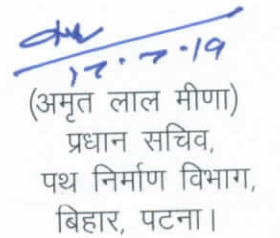 17.7.19
(अमृत लाल मीणा)
प्रधान सचिव,
पथ निर्माण विभाग,
बिहार, पटना।